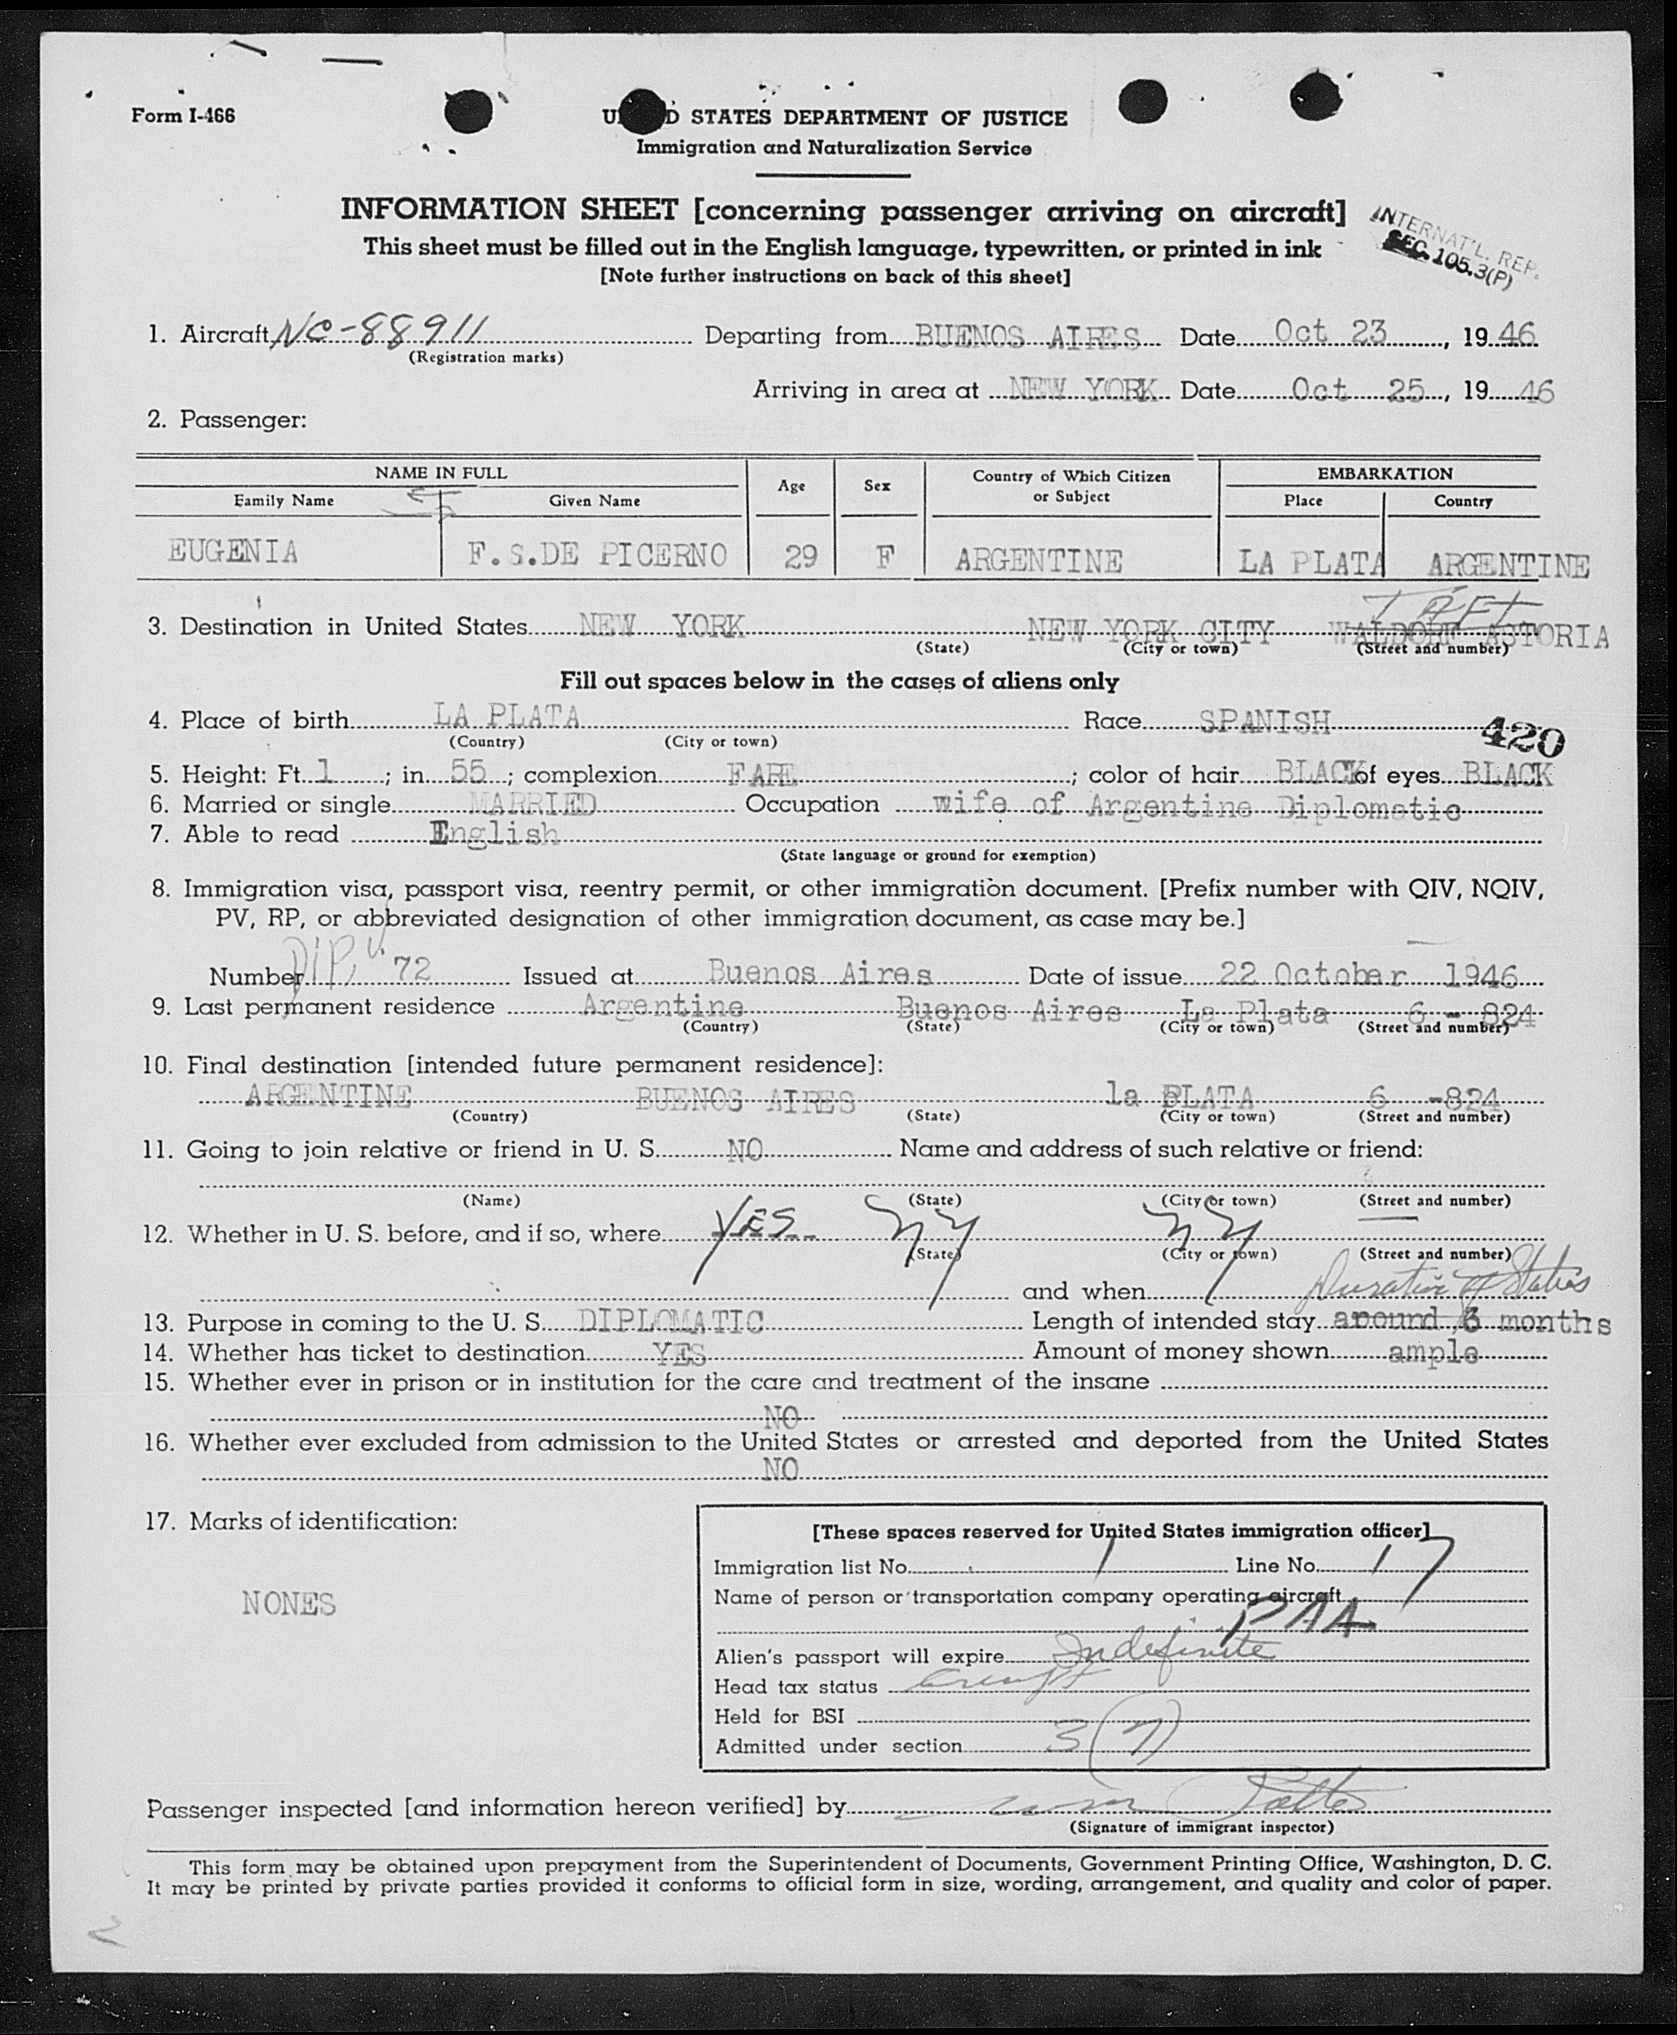 Form I-466
UNITED STATES DEPARTMENT OF JUSTICE
Immigration and Naturalization Service
INFORMATION SHEET [concerning passenger arriving on aircraft]
This sheet must be filled out in the English language, typewritten, or printed in ink
[Note further instructions on back of this sheet]
INTERNAT'L. REP.
SEC. 105.3(P)
1. Aircraft NC-88911 Departing from BUENOS AIRES Date Oct 23, 19 46
(Registration marks)
Arriving in area at NEW YORK Date Oct 25, 19 46
2. Passenger:
NAME IN FULL Age Sex Country of Which Citizen or Subject EMBARKATION
Family Name Given Name Place Country
EUGENIA F.S.DE PICERNO 29 F ARGENTINE LA PLATA ARGENTINE
TAFT
3. Destination in United States NEW YORK NEW YORK CITY WALDORF ASTORIA
(State) (City or town) (Street and number)
Fill out spaces below in the cases of aliens only
4. Place of birth LA PLATA Race SPANISH 420
(Country) (City or town)
5. Height: Ft. 1; in. 55; complexion FARE; color of hair BLACK of eyes BLACK
6. Married or single MARRIED Occupation wife of Argentine Diplomatic
7. Able to read English
(State language or ground for exemption)
8. Immigration visa, passport visa, reentry permit, or other immigration document. [Prefix number with QIV, NQIV,
PV, RP, or abbreviated designation of other immigration document, as case may be.]
Number Dip. V. 72 Issued at Buenos Aires Date of issue 22 October 1946
9. Last permanent residence Argentine Buenos Aires La Plata 6 - 824
(Country) (State) (City or town) (Street and number)
10. Final destination [intended future permanent residence]:
ARGENTINE BUENOS AIRES la PLATA 6 -824
(Country) (State) (City or town) (Street and number)
11. Going to join relative or friend in U. S. NO Name and address of such relative or friend:
(Name) (State) (City or town) (Street and number)
12. Whether in U. S. before, and if so, where YES NY NY
(State) (City or town) (Street and number)
and when Duration of Status
13. Purpose in coming to the U. S. DIPLOMATIC Length of intended stay around 6 months
14. Whether has ticket to destination YES Amount of money shown ample
15. Whether ever in prison or in institution for the care and treatment of the insane
NO
16. Whether ever excluded from admission to the United States or arrested and deported from the United States
NO
17. Marks of identification:
NONES
[These spaces reserved for United States immigration officer]
Immigration list No. 1 Line No. 17
Name of person or transportation company operating aircraft
PAA
Alien's passport will expire Indefinite
Head tax status Exempt
Held for BSI
Admitted under section 3(7)
Passenger inspected [and information hereon verified] by
(Signature of immigrant inspector)
This form may be obtained upon prepayment from the Superintendent of Documents, Government Printing Office, Washington, D. C.
It may be printed by private parties provided it conforms to official form in size, wording, arrangement, and quality and color of paper.
2